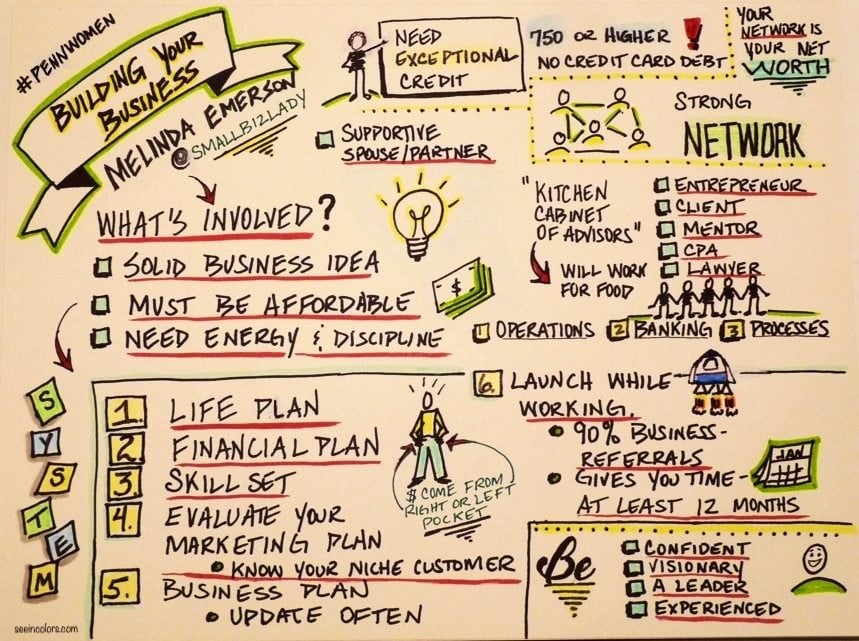 #PENNWOMEN
BUILDING YOUR
BUSINESS
MELINDA EMERSON
@SMALLBIZLADY
NEED
EXCEPTIONAL
CREDIT
750 OR HIGHER !
NO CREDIT CARD DEBT
YOUR
NETWORK IS
YOUR NET
WORTH
SUPPORTIVE
SPOUSE/PARTNER
STRONG
NETWORK
WHAT'S INVOLVED?
SOLID BUSINESS IDEA
MUST BE AFFORDABLE
$
NEED ENERGY & DISCIPLINE
"KITCHEN
CABINET
OF ADVISORS"
WILL WORK
FOR FOOD
ENTREPRENEUR
CLIENT
MENTOR
CPA
LAWYER
1 OPERATIONS 2 BANKING 3 PROCESSES
SYSTEM
1. LIFE PLAN
2. FINANCIAL PLAN
3. SKILL SET
4. EVALUATE YOUR
MARKETING PLAN
• KNOW YOUR NICHE CUSTOMER
5. BUSINESS PLAN
• UPDATE OFTEN
$ COME FROM
RIGHT OR LEFT
POCKET
6. LAUNCH WHILE
WORKING.
• 90% BUSINESS-
REFERRALS
• GIVES YOU TIME-
AT LEAST 12 MONTHS
JAN
Be
CONFIDENT
VISIONARY
A LEADER
EXPERIENCED
seeincolors.com